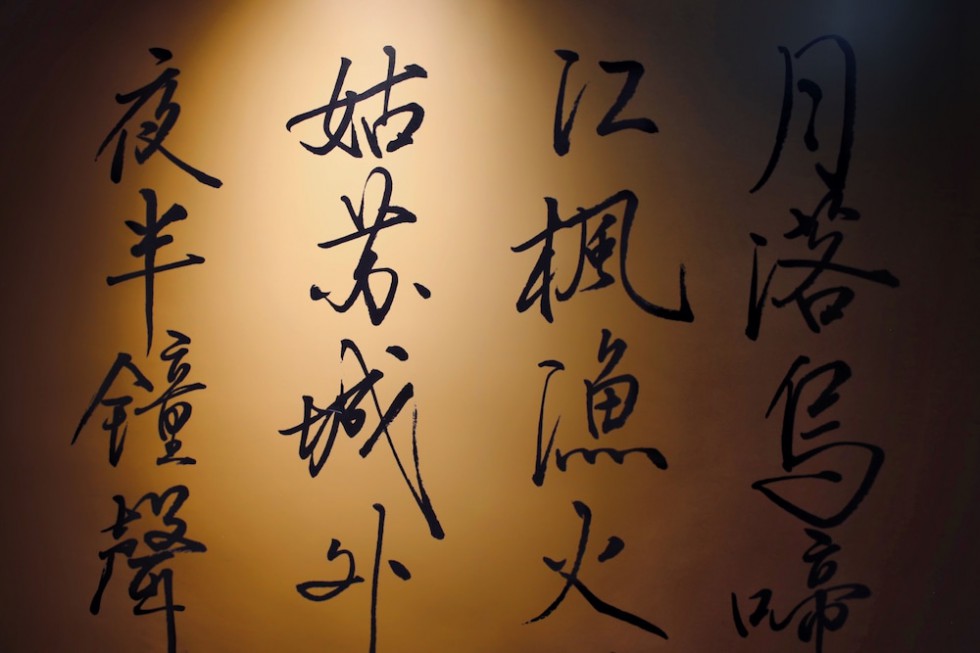 月落烏啼
江楓漁火
姑苏城外
夜半鐘聲